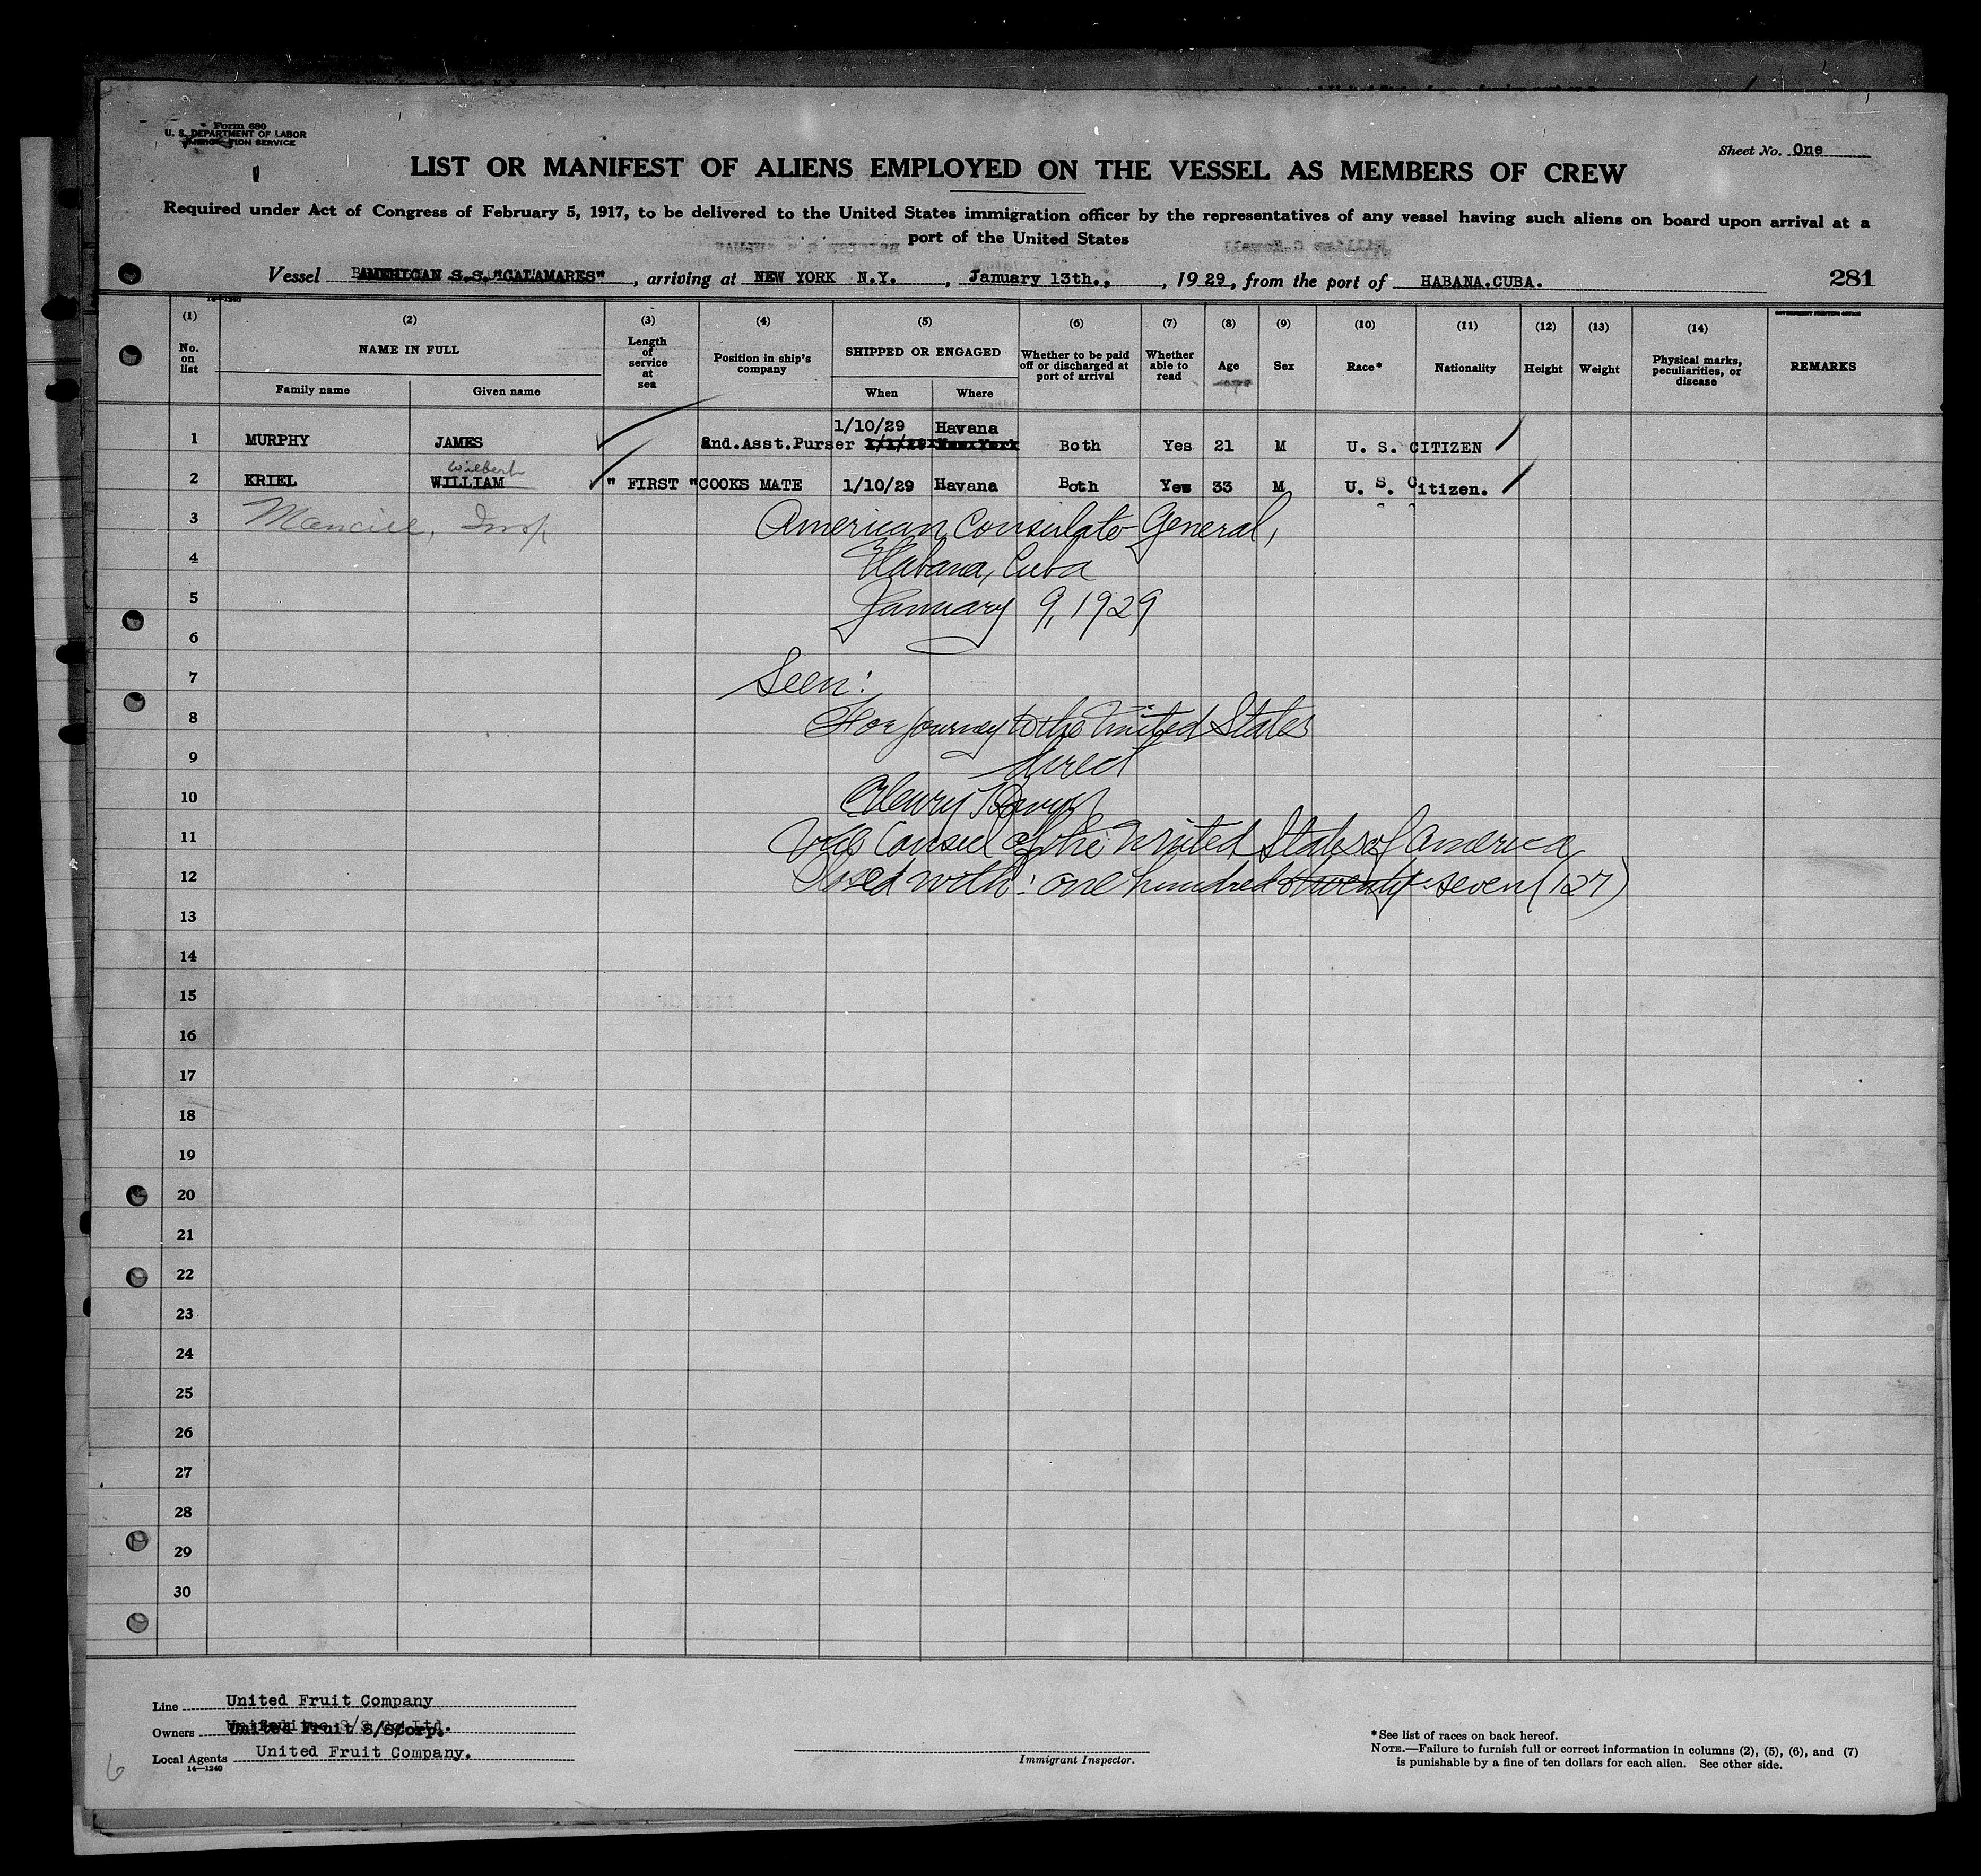 Form 680
U. S. DEPARTMENT OF LABOR
IMMIGRATION SERVICE
Sheet No. One
LIST OR MANIFEST OF ALIENS EMPLOYED ON THE VESSEL AS MEMBERS OF CREW
Required under Act of Congress of February 5, 1917, to be delivered to the United States immigration officer by the representatives of any vessel having such aliens on board upon arrival at a
port of the United States
Vessel AMERICAN S.S. "CALAMARES", arriving at NEW YORK N.Y., January 13th., 1929, from the port of HABANA.CUBA. 281
14-1240
(1) (2) (3) (4) (5) (6) (7) (8) (9) (10) (11) (12) (13) (14)
GOVERNMENT PRINTING OFFICE
No. on list NAME IN FULL Length of service at sea Position in ship's company SHIPPED OR ENGAGED Whether to be paid off or discharged at port of arrival Whether able to read Age Sex Race* Nationality Height Weight Physical marks, peculiarities, or disease REMARKS
Family name Given name When Where
1/10/29 Havana
1 MURPHY JAMES 2nd.Asst.Purser 1/1/29 New York Both Yes 21 M U. S. CITIZEN
Wilbert
2 KRIEL WILLIAM " FIRST " COOKS MATE 1/10/29 Havana Both Yes 33 M U. S. Citizen.
3 Insp American Consulate General,
4 Habana, Cuba
5 January 9, 1929
6
7 Seen:
8 For journey to the United States
9 direct
10 Henry
11 Vice Consul of the United States of America
12 Closed with: one hundred & twenty-seven (127)
13
14
15
16
17
18
19
20
21
22
23
24
25
26
27
28
29
30
Line United Fruit Company
Owners United Fruit S/S Corp.
Local Agents United Fruit Company.
14—1240
6
Immigrant Inspector.
*See list of races on back hereof.
NOTE.—Failure to furnish full or correct information in columns (2), (5), (6), and (7)
is punishable by a fine of ten dollars for each alien. See other side.